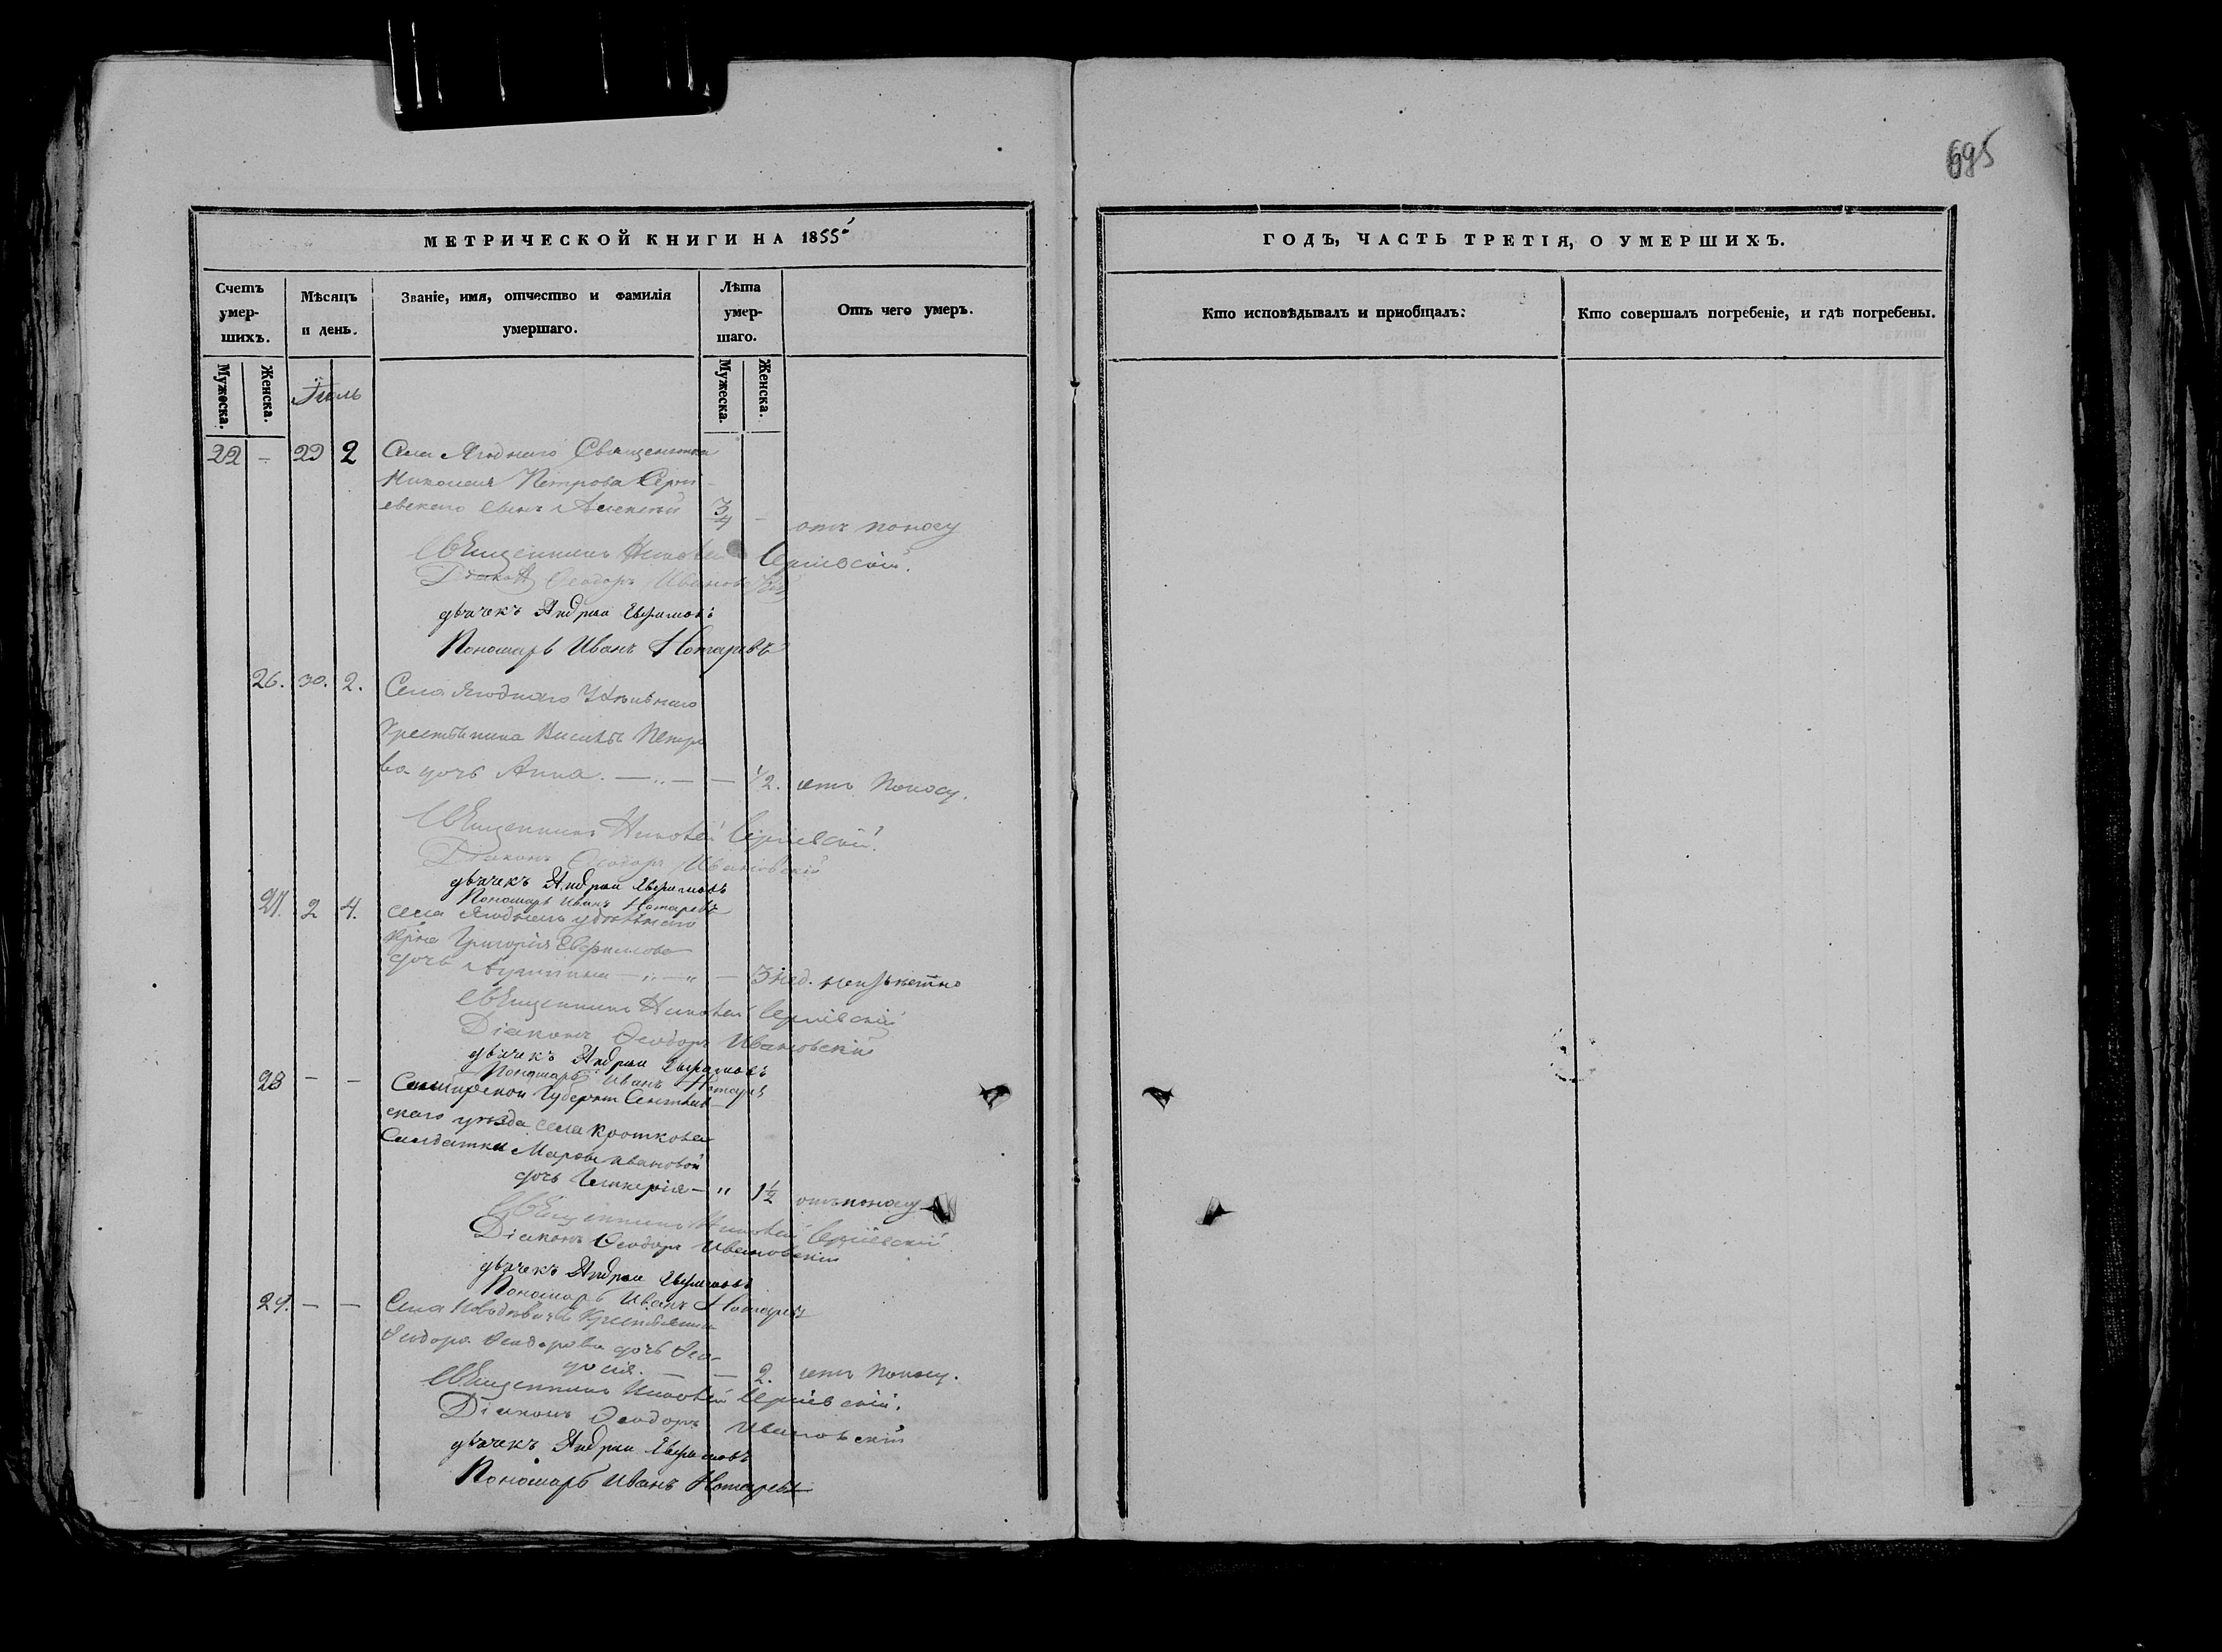 695
МЕТРИЧЕСКОЙ КНИГИ НА 1855
ГОДЪ, ЧАСТЬ ТРЕТІЯ, О УМЕРШИХЪ.
Счетъ умер-шихъ.
Мѣсяцъ и день.
Званіе, имя, отчество и фамилія умершаго.
Лѣта умер-шаго.
Отъ чего умеръ.
Кто исповѣдывалъ и приобщалъ:
Кто совершалъ погребеніе, и гдѣ погребены.
Мужеска.
Женска.
Мужеска.
Женска.
Іюль
22 – 29 2 Села Ягоднаго Священника
Николая Петрова Серги-
евскаго сынъ Алексѣй 3/4 – отъ поносу
Священникъ Николай Сергіевскій.
Діаконъ Ѳеодоръ Ивановскій
дьячекъ Андрей
Пономарь Иванъ Нотаревъ
26. 30. 2. Села Ягоднаго Удѣльнаго
Крестьянина Василья Петро
ва дочь Анна. – „ – – 1/2. отъ поносу.
Священникъ Николай Сергіевскій.
Діаконъ Ѳеодоръ Ивановскій
дьячекъ Андрей
Пономарь Иванъ Нотаревъ
27. 2 4. села Ягоднаго удѣльнаго
крна Григорія Евфимова
дочь – „ – „ – 3 нед. неизвѣстно
Священникъ Николай Сергіевскій
Діаконъ Ѳеодоръ Ивановскій
дьячекъ Андрей
Пономарь Иванъ Нотаревъ
28 – – Симбирской Губерніи
скаго уѣзда села Кроткова
Солдатки Марѳы Ивановой
дочь Гликерія – „ 1 1/2 отъ поносу
Священникъ Николай Сергіевскій
Діаконъ Ѳеодоръ Ивановскій
дьячекъ Андрей
Пономарь Иванъ Нотаревъ
29. – – Села Новодѣвичья Крестьянина
Ѳедора Ѳедорова дочь Ѳео-
досія. – – 2. отъ поносу.
Священникъ Николай Сергіевскій.
Діаконъ Ѳеодоръ Ивановскій
дьячекъ Андрей
Пономарь Иванъ Нотаревъ